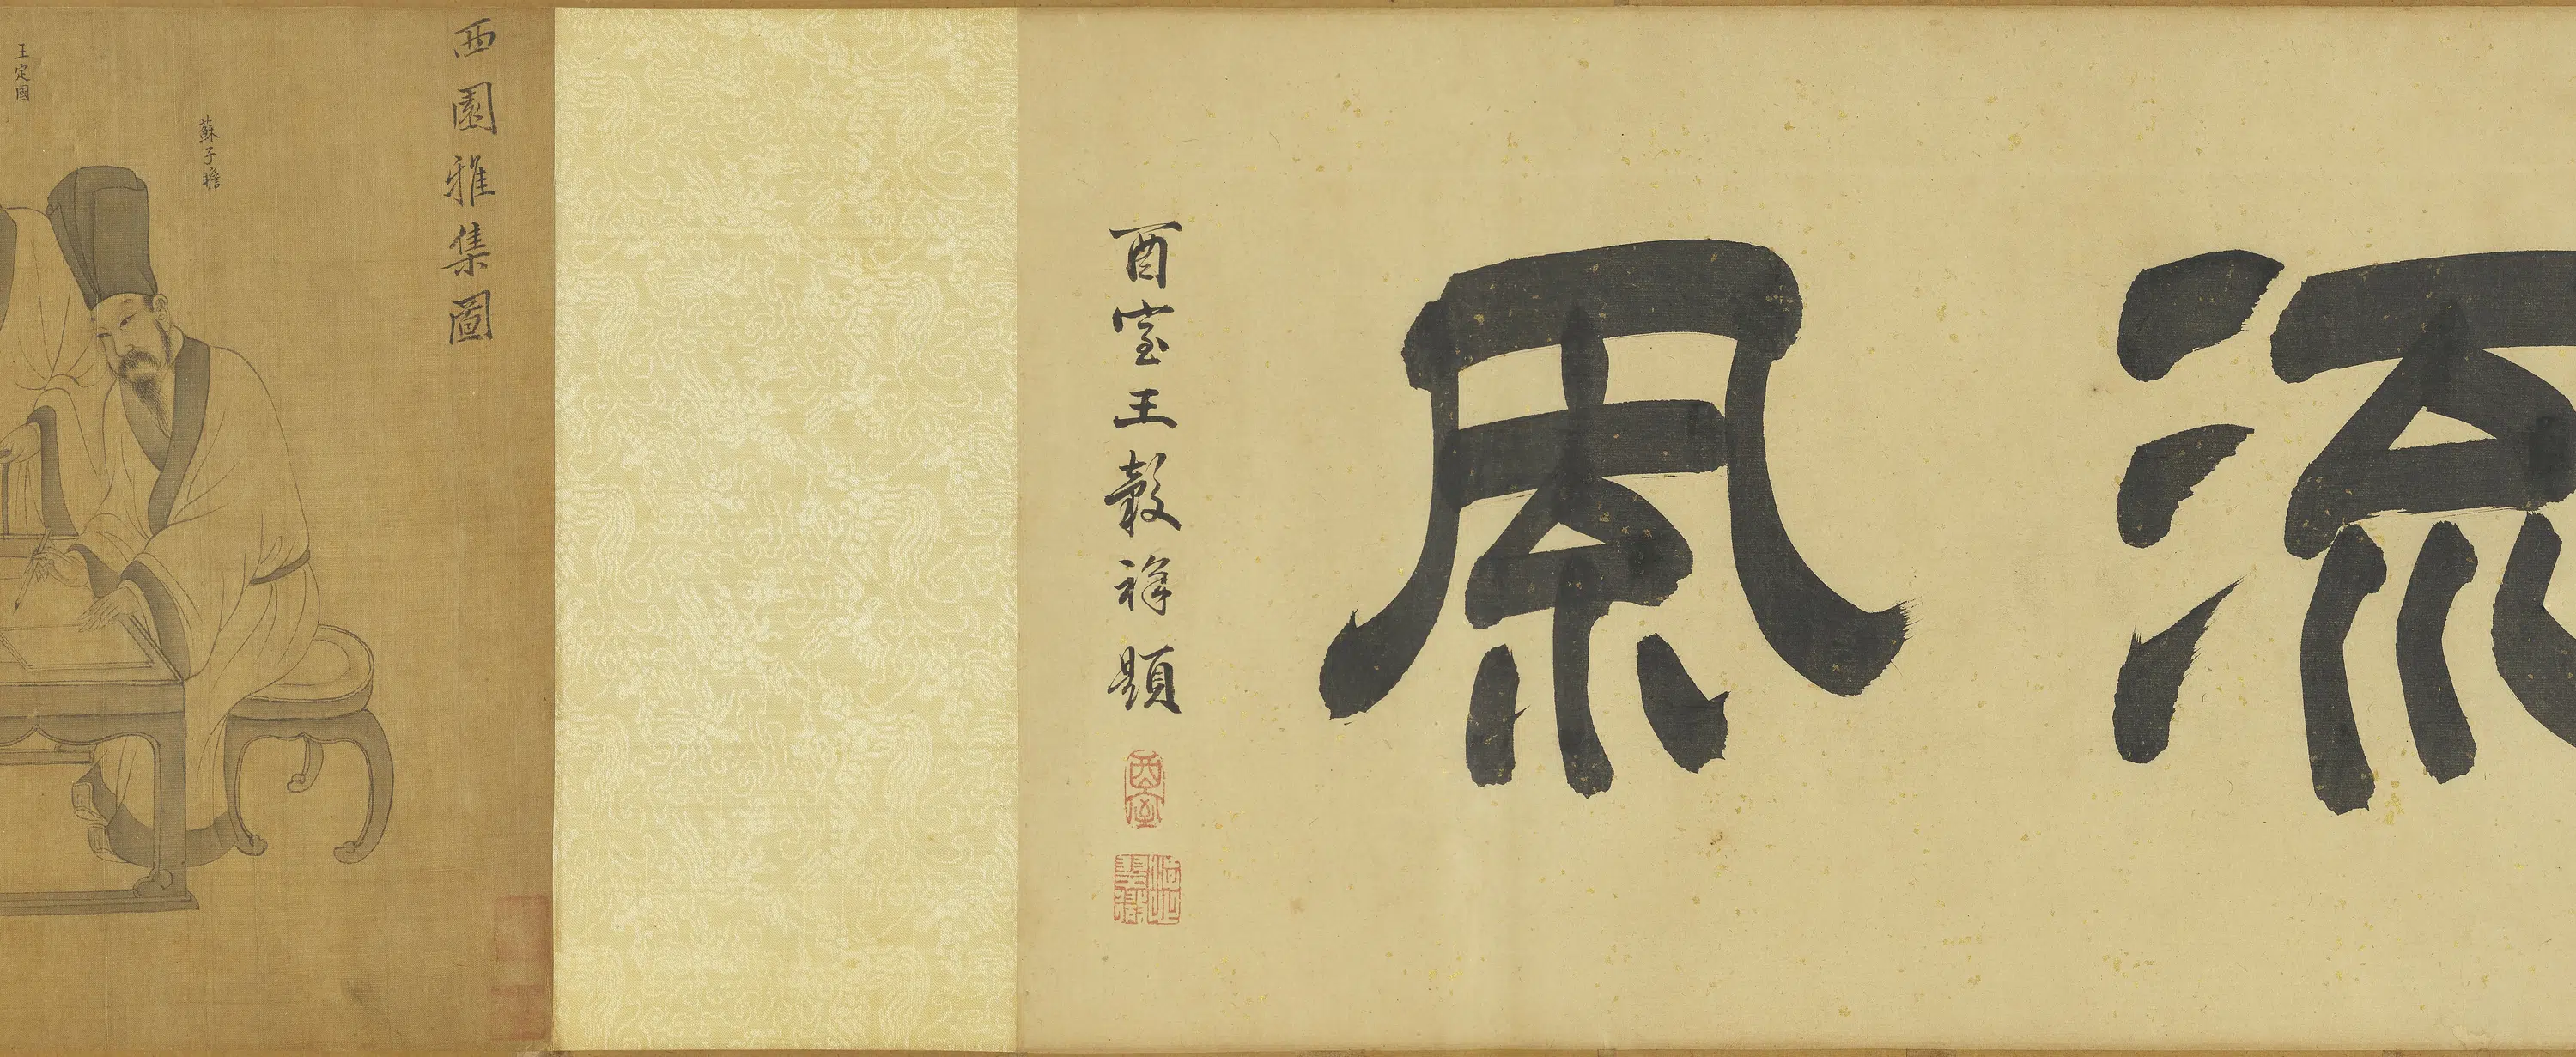 流風
酉室王穀祥題
酉室
西園雅集圖
蘇子瞻
王定國